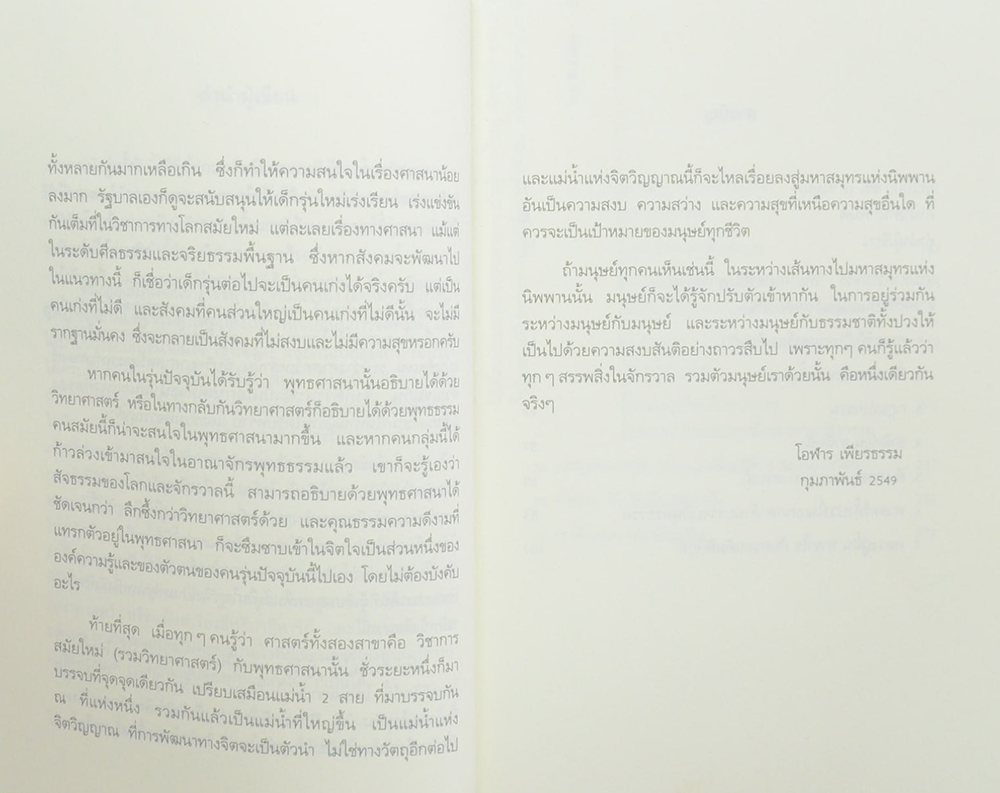 ทั้งหลายกันมากเหลือเกิน ซึ่งก็ทำให้ความสนใจในเรื่องศาสนาน้อย
ลงมาก รัฐบาลเองก็ดูจะสนับสนุนให้เด็กรุ่นใหม่เร่งเรียน เร่งแข่งขัน
กันเต็มที่ในวิชาการทางโลกสมัยใหม่ แต่ละเลยเรื่องทางศาสนา แม้แต่
ในระดับศีลธรรมและจริยธรรมพื้นฐาน ซึ่งหากสังคมจะพัฒนาไป
ในแนวทางนี้ ก็เชื่อว่าเด็กรุ่นต่อไปจะเป็นคนเก่งได้จริงครับ แต่เป็น
คนเก่งที่ไม่ดี และสังคมที่คนส่วนใหญ่เป็นคนเก่งที่ไม่ดีนั้น จะไม่มี
รากฐานมั่นคง ซึ่งจะกลายเป็นสังคมที่ไม่สงบและไม่มีความสุขหรอกครับ
หากคนในรุ่นปัจจุบันได้รับรู้ว่า พุทธศาสนานั้นอธิบายได้ด้วย
วิทยาศาสตร์ หรือในทางกลับกันวิทยาศาสตร์ก็อธิบายได้ด้วยพุทธธรรม
คนสมัยนี้ก็น่าจะสนใจในพุทธศาสนามากขึ้น และหากคนกลุ่มนี้ได้
ก้าวล่วงเข้ามาสนใจในอาณาจักรพุทธธรรมแล้ว เขาก็จะรู้เองว่า
สัจธรรมของโลกและจักรวาลนี้ สามารถอธิบายด้วยพุทธศาสนาได้
ชัดเจนกว่า ลึกซึ้งกว่าวิทยาศาสตร์ด้วย และคุณธรรมความดีงามที่
แทรกตัวอยู่ในพุทธศาสนา ก็จะซึมซาบเข้าในจิตใจเป็นส่วนหนึ่งของ
องค์ความรู้และของตัวตนของคนรุ่นปัจจุบันนี้ไปเอง โดยไม่ต้องบังคับ
อะไร
ท้ายที่สุด เมื่อทุก ๆ คนรู้ว่า ศาสตร์ทั้งสองสาขาคือ วิชาการ
สมัยใหม่ (รวมวิทยาศาสตร์) กับพุทธศาสนานั้น ชั่วระยะหนึ่งก็มา
บรรจบที่จุดจุดเดียวกัน เปรียบเสมือนแม่น้ำ 2 สาย ที่มาบรรจบกัน
ณ ที่แห่งหนึ่ง รวมกันแล้วเป็นแม่น้ำที่ใหญ่ขึ้น เป็นแม่น้ำแห่ง
จิตวิญญาณ ที่การพัฒนาทางจิตจะเป็นตัวนำ ไม่ใช่ทางวัตถุอีกต่อไป
และแม่น้ำแห่งจิตวิญญาณนี้ก็จะไหลเรื่อยลงสู่มหาสมุทรแห่งนิพพาน
อันเป็นความสงบ ความสว่าง และความสุขที่เหนือความสุขอื่นใด ที่
ควรจะเป็นเป้าหมายของมนุษย์ทุกชีวิต
ถ้ามนุษย์ทุกคนเห็นเช่นนี้ ในระหว่างเส้นทางไปมหาสมุทรแห่ง
นิพพานนั้น มนุษย์ก็จะได้รู้จักปรับตัวเข้าหากัน ในการอยู่ร่วมกัน
ระหว่างมนุษย์กับมนุษย์ และระหว่างมนุษย์กับธรรมชาติทั้งปวงให้
เป็นไปด้วยความสงบสันติอย่างถาวรสืบไป เพราะทุกๆ คนก็รู้แล้วว่า
ทุก ๆ สรรพสิ่งในจักรวาล รวมตัวมนุษย์เราด้วยนั้น คือหนึ่งเดียวกัน
จริงๆ
โอฬาร เพียรธรรม
กุมภาพันธ์ 2549